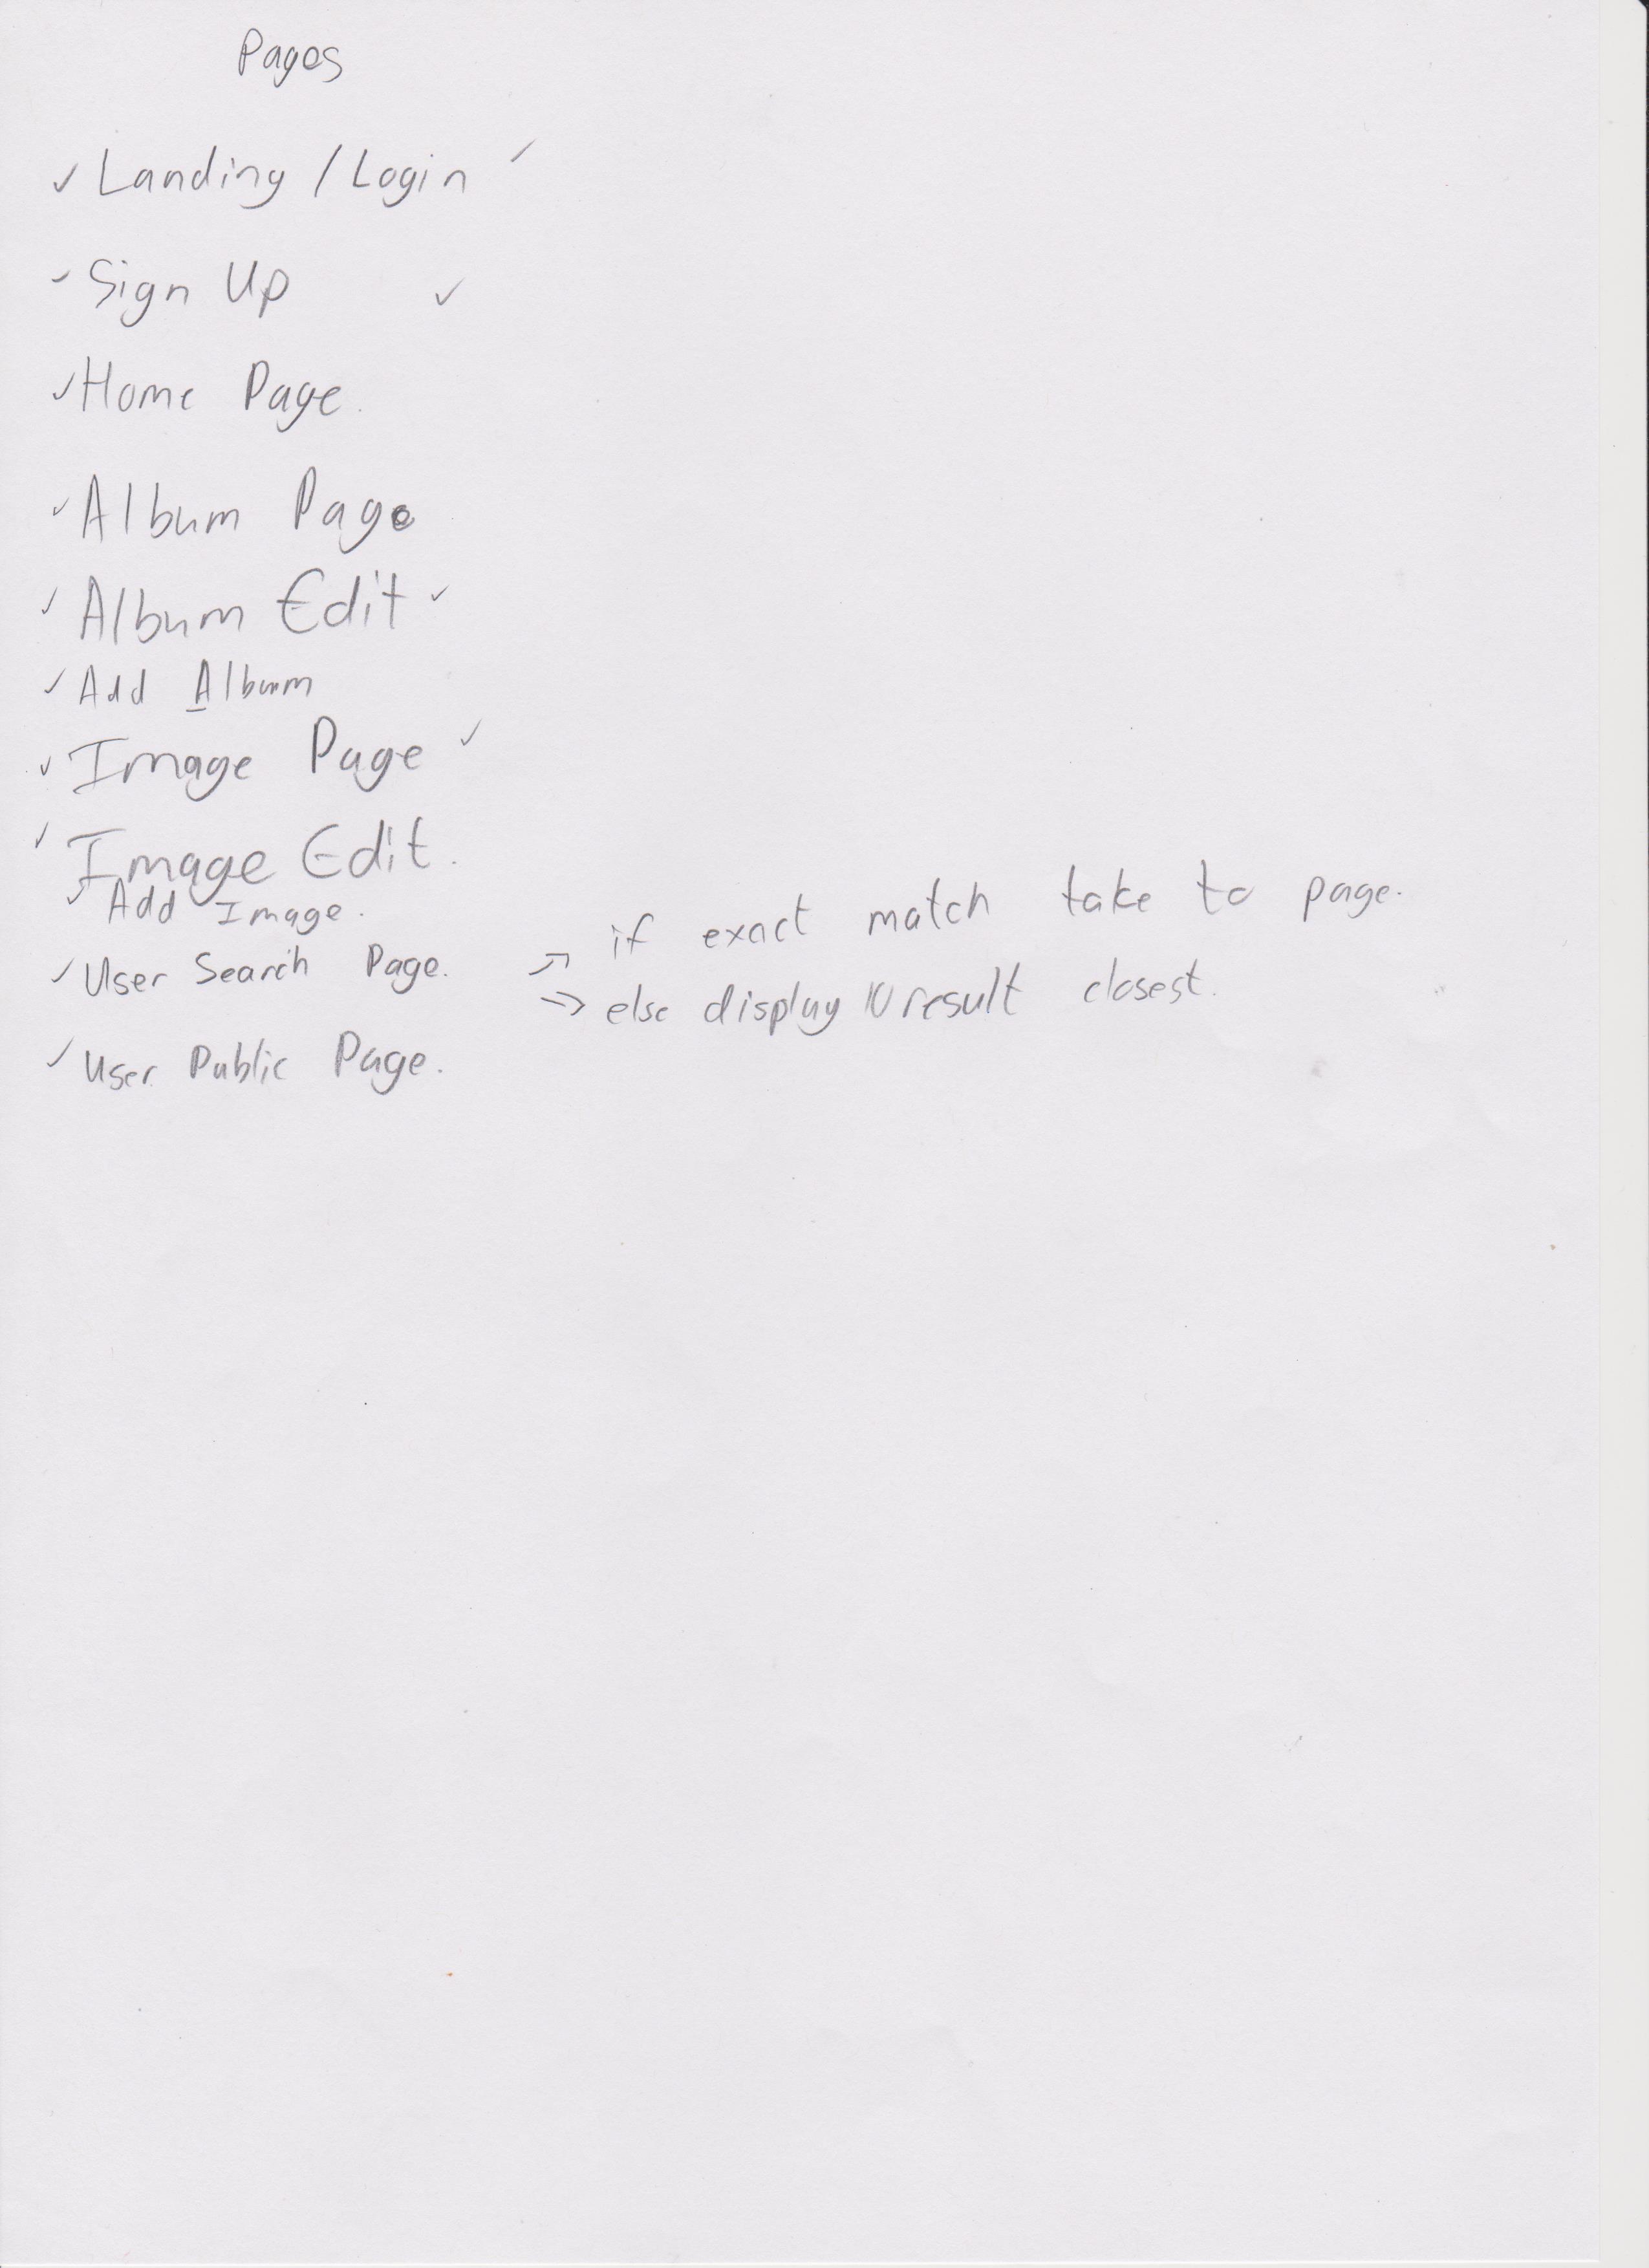 Pages
✓ Landing / Login ✓
✓ Sign Up ✓
✓ Home Page.
✓ Album Page
✓ Album Edit ✓
✓ Add Album
✓ Image Page ✓
✓ Image Edit.
✓ Add Image.
✓ User Search Page. → if exact match take to page.
→ else display 10 result closest.
✓ User Public Page.